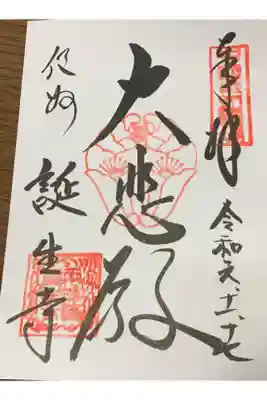 奉拝
令和元、十一、十七
大悲殿
誕生寺